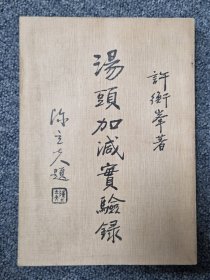 許衡峯著
湯頭加減實驗錄
陳立夫題